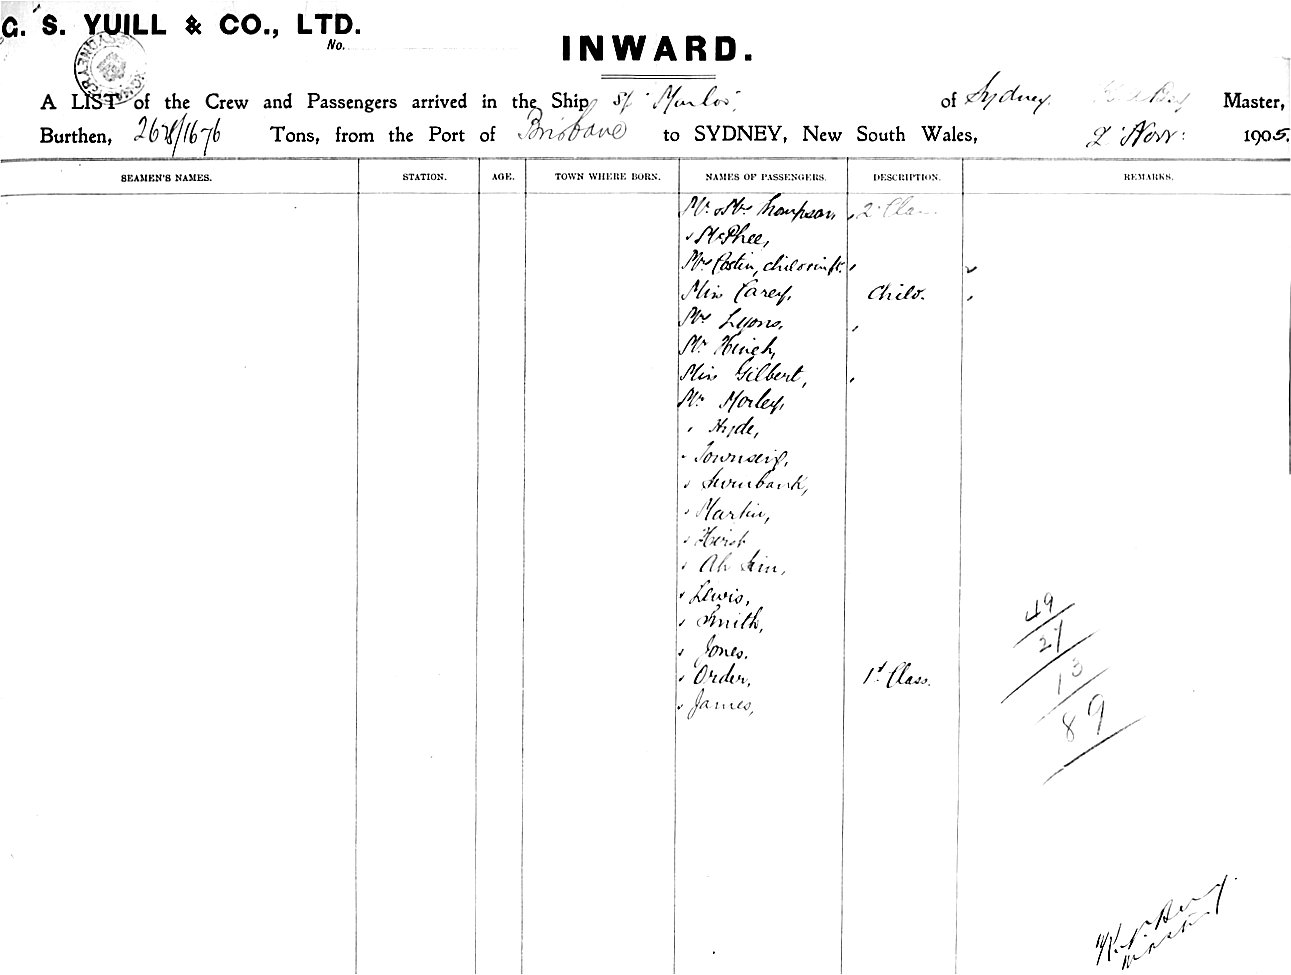 G. S. YUILL & CO., LTD.
No.
INWARD.
A LIST of the Crew and Passengers arrived in the Ship of Sydney Master,
Burthen, 2678/1676 Tons, from the Port of Brisbane to SYDNEY, New South Wales, 2 Novr: 1905.
SEAMEN'S NAMES. STATION. AGE. TOWN WHERE BORN. NAMES OF PASSENGERS. DESCRIPTION. REMARKS.
Mr & Mrs Thompson, 2d Class
" McPhee,
Mrs Costin, child & inft.
Miss Carey, Child.
Mrs Lyons,
Mr Hinch,
Miss Gilbert,
Mr Morley,
" Hyde,
"
" Swinbank,
" Martin,
" Hirst
" Ah
" Lewis,
" Smith,
" Jones.
" Order, 1st Class.
" James,
49
27
13
89